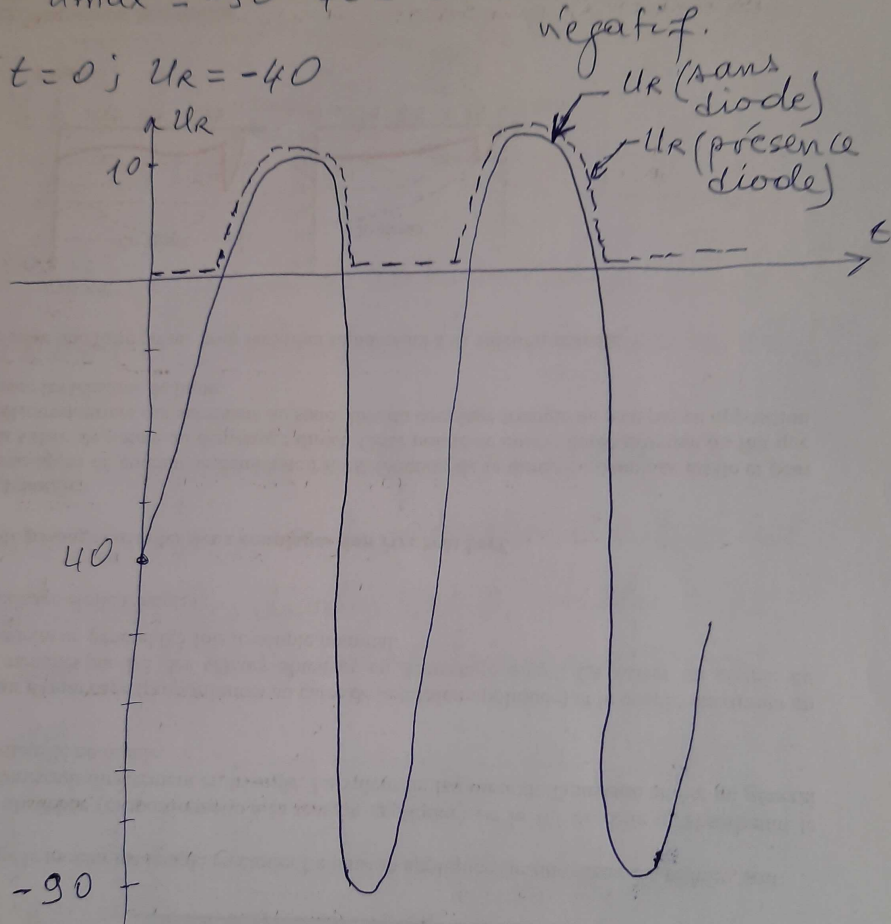 négatif.
t = 0 ; UR = -40
UR (sans
diode)
UR
10
UR (présence
diode)
t
40
-90